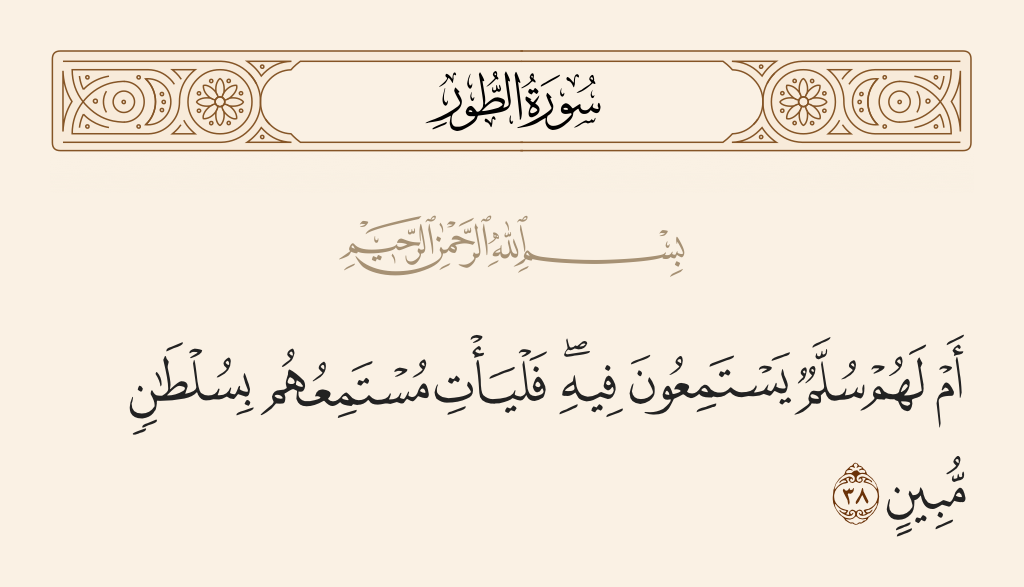 سُورَةُ الطُّورِ
بِسْمِ ٱللَّهِ ٱلرَّحْمَٰنِ ٱلرَّحِيمِ
أَمْ لَهُمْ سُلَّمٌ يَسْتَمِعُونَ فِيهِ ۖ فَلْيَأْتِ مُسْتَمِعُهُم بِسُلْطَٰنٍ
مُّبِينٍ ٣٨